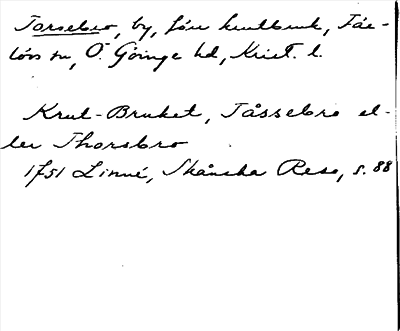 Torsebro, by, förr krutbruk, Fär-
löv sn, Ö. Göinge hd, Krist. l.
Krut-Bruket, Tåssebro el-
ler Thorsbro
1751 Linné, Skånska Resa, s. 88